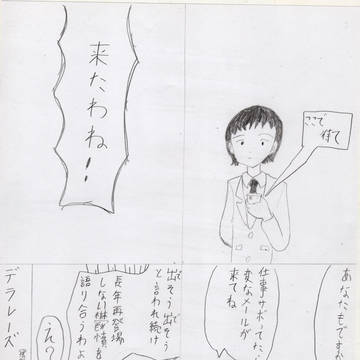 ここで
待て
来たわね!
あなたもですか
仕事サボって、
変なメールが
来てね
出そう出そう
と言われ続け
長年再登場
しない鬱憤を
語り合うわよ
えっ?
デラレーズ